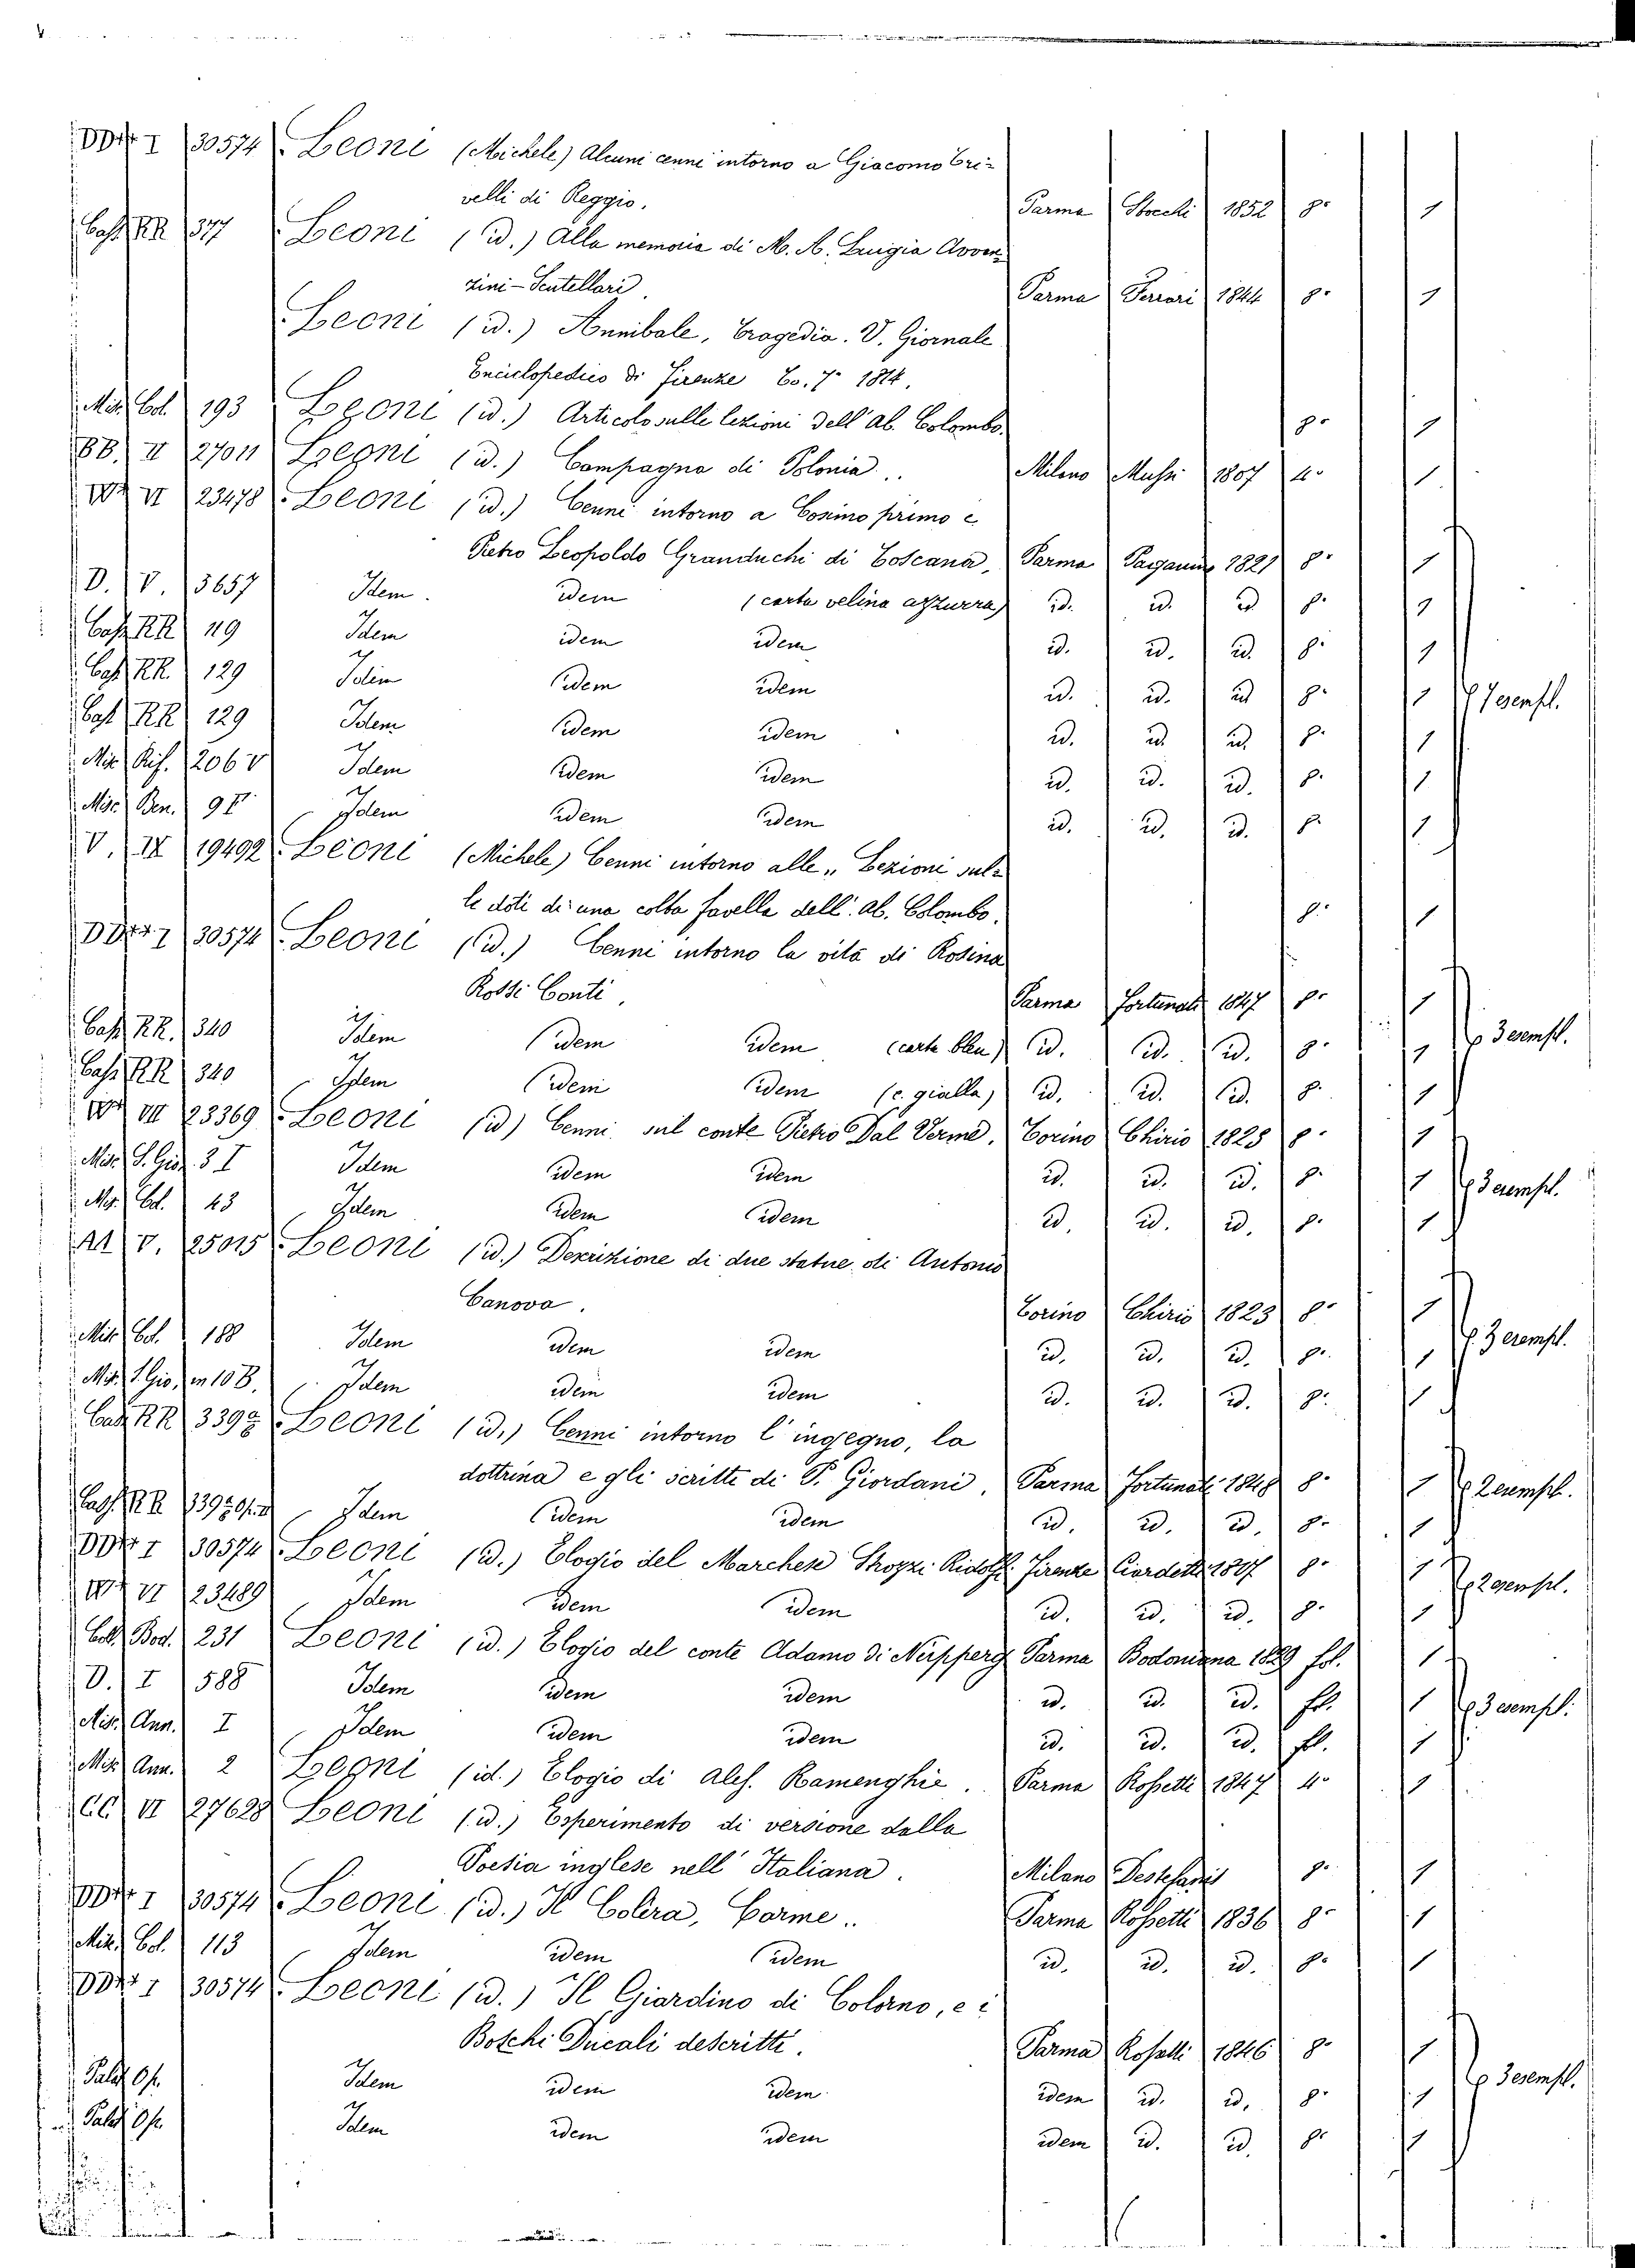 I 30574 Leoni (Michele) Alcuni cenni intorno a Giacomo Cri-
velli di Reggio. Parma Stocchi 1852 8° 1
Cass. RR 377 Leoni (id.) Alla memoria di M. A. Luigia Avven-
zini-Sentellari Parma Ferrari 1844 8° 1
Leoni (id.) Annibale, Tragedia. V. Giornale
Enciclopedico di Firenze To. 7° 1814.
Mis. Col. 193 Leoni (id.) Articolo sulle lezioni dell' Ab. Colombo. 8° 1
BB. II 27011 Leoni (id.) Campagna di Polonia. Milano Mussi 1807 4° 1
VI 23478 Leoni (id.) Cenni intorno a Cosimo primo e
Pietro Leopoldo Granduchi di Toscana, Parma Paganino 1821 8° 1
D. V. 3657 Idem. idem (carta velina azzurra) id. id. id. 8° 1
Cass. RR 119 Idem idem idem id. id. id. 8° 1
Cass. RR. 129 Idem idem idem id. id. id. 8° 1 7 esempl.
Cass. RR 129 Idem idem idem id. id. id. 8° 1
Mis. Rif. 206 V Idem idem idem id. id. id. 8° 1
Misc. Ben. 9 Idem idem idem id. id. id. 8° 1
V. IX 19492 Leoni (Michele) Cenni intorno alle „ Lezioni sul-
le doti di una colta favella dell'. Ab. Colombo. 8° 1
I 30574 Leoni (id.) Cenni intorno la vita di Rosina
Rossi Conti. Parma Fortunati 1847 8° 1
Cass. RR. 340 Idem idem idem (carta bleu) id. id. id. 8° 1 3 esempl.
Cass. RR 340 Idem idem idem (c. gialla) id. id. id. 8° 1
VIII 23369 Leoni (id) Cenni sul conte Pietro Dal Verme. Torino Chirio 1828 8° 1
Mis. S. Gio. 3 I Idem idem idem id. id. id. 8° 1 3 esempl.
Mis. Col. 43 Idem idem idem id. id. id. 8° 1
AA V. 25015 Leoni (id.) Descrizione di due statue di Antonio
Canova. Torino Chirio 1823 8° 1
Mis. Col. 188 Idem idem idem id. id. id. 8° 1 3 esempl.
Mis. S. Gio. in 10 B. Idem idem idem id. id. id. 8° 1
Cas. RR 339 Leoni (id.) Cenni intorno l'ingegno, la
dottrina e gli scritti di P. Giordani. Parma Fortunati 1848 8° 1 2 esempl.
Cass. RR Idem idem idem id. id. id. 8° 1
I 30574 Leoni (id.) Elogio del Marchese Strozzi Ridolfi Firenze Ciardetti 1807 8° 1 2 esempl.
VI 23489 Idem idem idem id. id. id. 8° 1
Coll. Bod. 231 Leoni (id.) Elogio del conte Adamo di Neipperg Parma Bodoniana 1829 fol. 1
D. I 588 Idem idem idem id. id. id. fl. 1 3 esempl.
Mis. Ann. I Idem idem idem id. id. id. fl. 1
Mis. Ann. 2 Leoni (id.) Elogio di Aless. Ramenghie. Parma Rossetti 1847 4° 1
CC VI 27628 Leoni (id.) Esperimento di versione della
Poesia inglese nell' Italiana. Milano Destefanis 8° 1
I 30574 Leoni (id.) Il Colera, Carme.. Parma Rossetti 1836 8° 1
Mis. Col. 113 Idem idem idem id. id. id. 8° 1
I 30574 Leoni (id.) Il Giardino di Colorno, e i
Boschi Ducali descritti. Parma Rossetti 1846 8° 1
Palat. Op. Idem idem idem idem id. id. 8° 1 3 esempl.
Palat. Op. Idem idem idem idem id. id. 8° 1